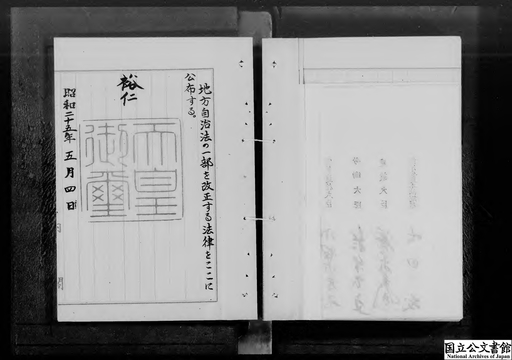 地方自治法の一部を改正する法律をここに
公布する。
裕仁
天皇
御璽
昭和二十五年五月四日
国立公文書館
National Archives of Japan